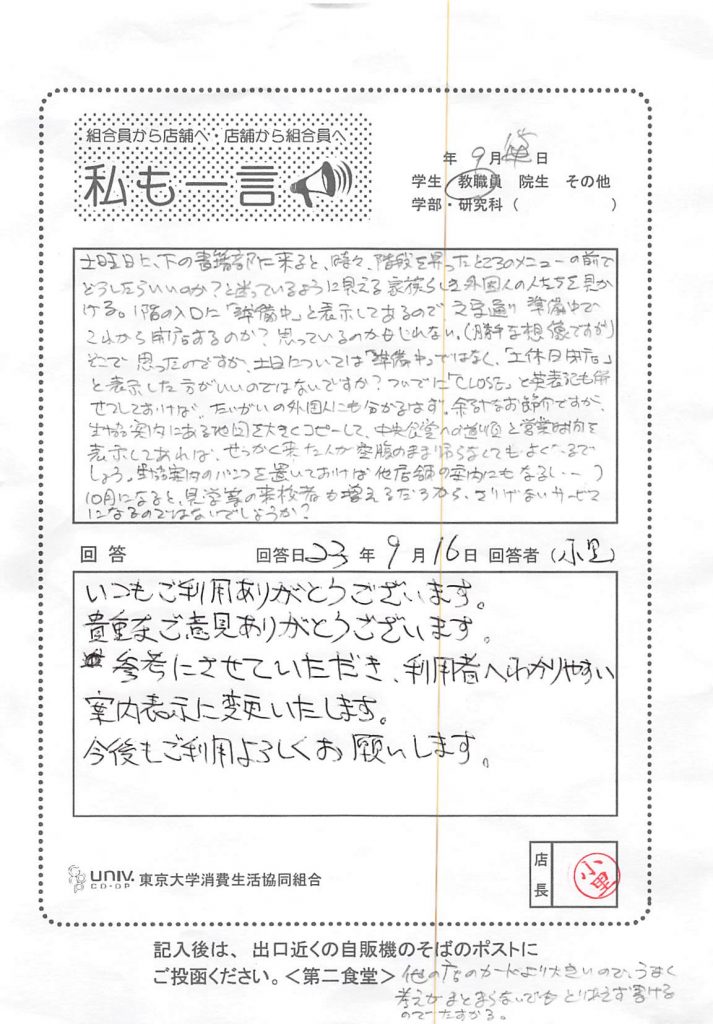 組合員から店舗へ・店舗から組合員へ
私も一言
年 9月 日
学生 教職員 院生 その他
学部・研究科( )
土日曜日に、下の書籍部に来ると、時々、階段を昇ったところのメニューの前で
どうしたらいいのか?と困っているように見える家族らしき外国人の人たちを見か
ける。1階の入口に「準備中」と表示してあるので文字通り準備中で
これから開店するのか?思っているのかもしれない。(勝手な想像ですが)
そこで思ったのですが、土日については「準備中」ではなく、「土休日閉店」
と表示した方がいいのではないですか?ついでに「CLOSE」と英表記も併
せつしておけば、たいがいの外国人にも分かるはず。余計なお節介ですが、
生協案内にある地図を大きくコピーして、中央食堂への道順と営業時間を
表示してあれば、せっかく来た人が空腹のまま帰らなくてもよくなるで
しょう。生協案内のパンフを置いておけば他店舗の案内にもなるし…)
10月になると、見学等の来校者も増えるだろうから、さりげないサービス
になるのではないでしょうか?
回答 回答日 23年 9月 16日 回答者 (小里)
いつもご利用ありがとうございます。
貴重なご意見ありがとうございます。
参考にさせていただき、利用者へわかりやすい
案内表示に変更いたします。
今後もご利用よろしくお願いします。
UNIV. CO-OP 東京大学消費生活協同組合
店長 小里
記入後は、出口近くの自販機のそばのポストに
ご投函ください。<第二食堂>
他の店のカードより大きいので、うまく
考えがまとまらないでもとりあえず書ける
のでたすかる。